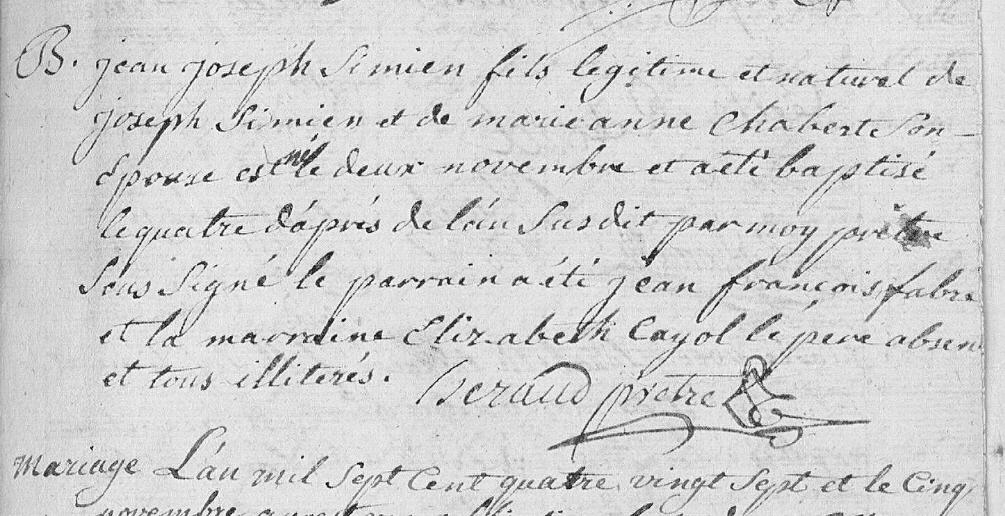 B. jean joseph Simien fils legitime et naturel de
joseph Simien et de marie anne Chabert Son
Epouse est né le deux novembre et a été baptisé
le quatre d'áprés de lán Susdit par moy prètre
Sous Signé le parrain a été jean françois fabre
et la marraine Elizabeth Cayol le pére absen
et tous illiterés. Geraud prètre
mariage Lán mil Sept Cent quatre vingt Sept et le Cinq
novembre